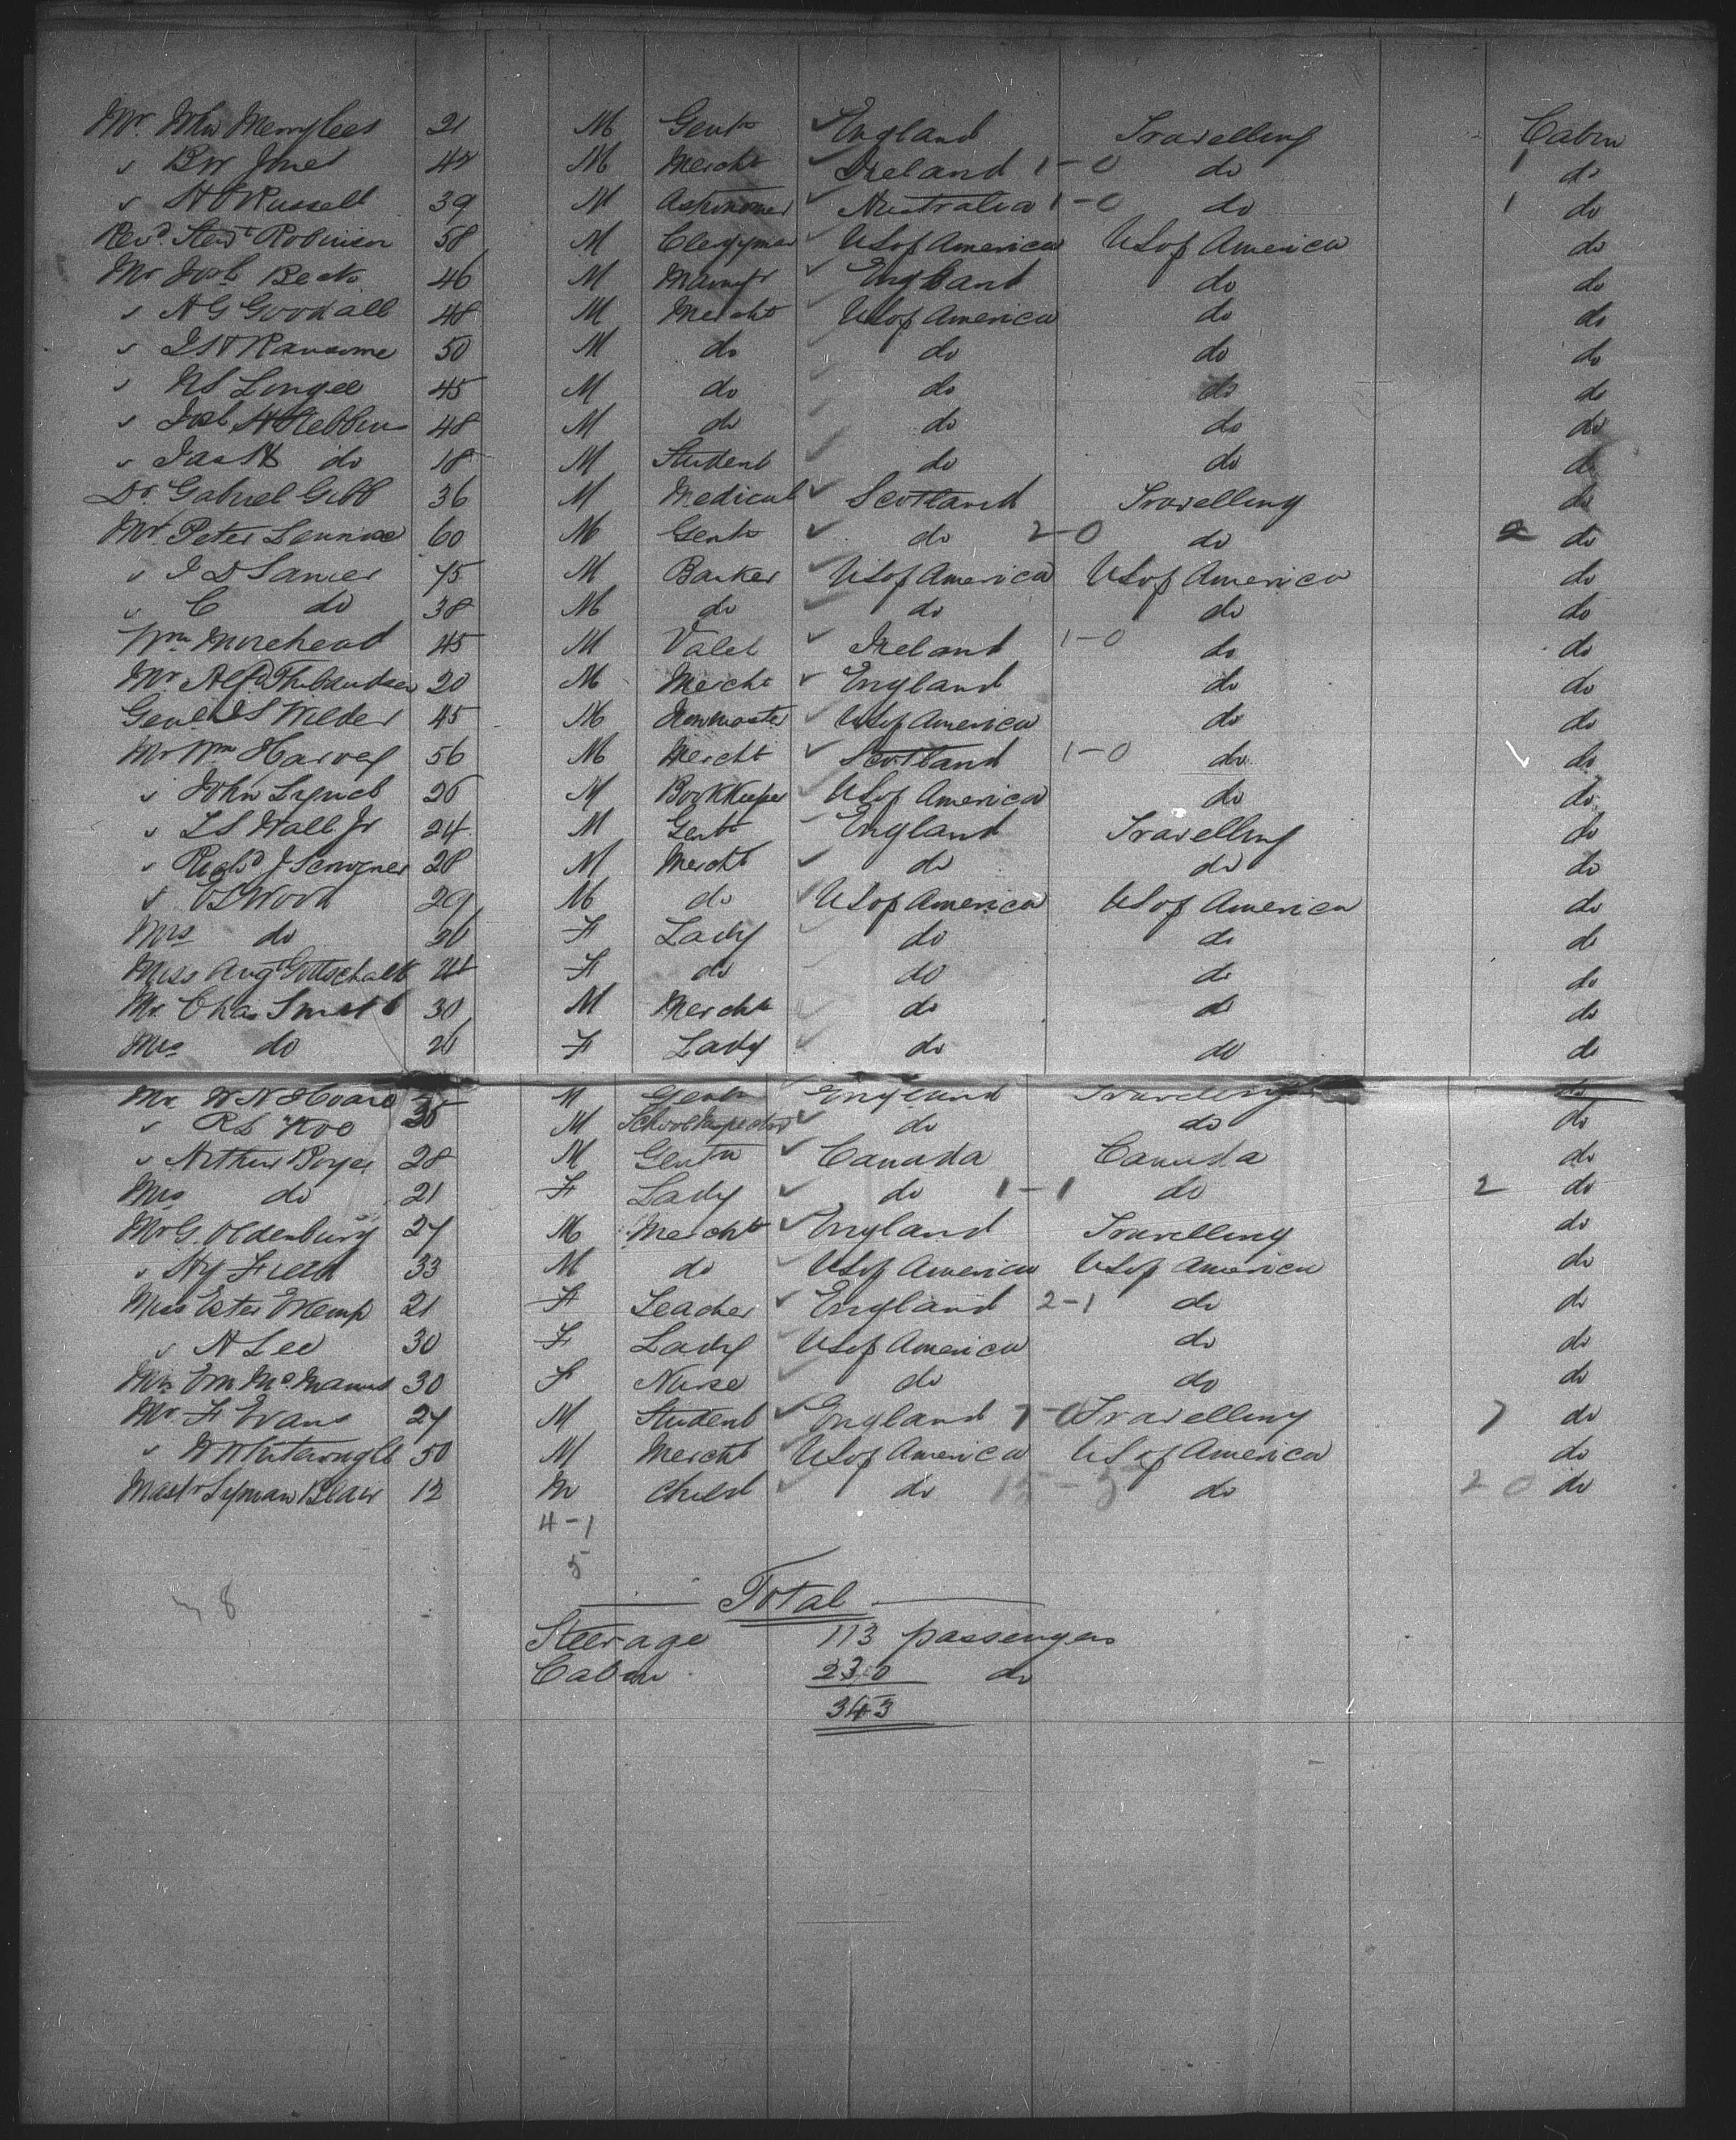 Mr. Jno Merrylees 21 M Gentn England Travelling Cabin
" B W Jones 42 M Mercht Ireland 1-0 do 1 do
" H C Russell 39 M Astronomer Australia 1-0 do 1 do
Revd. Stewt Robinson 58 M Clergyman US of America US of America do
Mr Josh Beck 46 M Manufr England do do
" A G Goodall 48 M Mercht US of America do do
" Ransome 50 M do do do do
" 45 M do do do do
" Josh H Stebbins 48 M do do do do
" Jas H do 18 M Student do do do
Dr. Gabriel Gibb 36 M Medical Scotland Travelling do
Mr. Peter Lennox 60 M Gentn do 2-0 do 2 do
" J D Lanier 75 M Banker US of America US of America do
" C do 38 M do do do do
Wm Morehead 45 M Valet Ireland 1-0 do do
Mr Alfd Thibaudeau 20 M Mercht England do do
Genl Wilder 45 M US of America do do
Mr Wm Harvey 56 M Mercht Scotland 1-0 do do
" John Lynch 26 M Bookkeeper US of America do do
" Wall Jr 24 M Gentn England Travelling do
" Richd J 28 M Mercht do do do
" Wood 29 M do US of America US of America do
Mrs do 26 F Lady do do do
Miss Aug Gottschalk 21 F do do do do
Mr. Chas Smith 30 M Mercht do do do
Mrs do 26 F Lady do do do
Mr W N Hoare 25 M Gentn England Travelling do
" R S 35 M School Inspector do do do
" Arthur Boyer 28 M Gentn Canada Canada do
Mrs do 21 F Lady do 1-1 do 2 do
Mr G. Oldenburg 27 M Mercht England Travelling do
" Hy Field 33 M do US of America US of America do
Miss Ester Kemp 21 F Teacher England 2-1 do do
" A Lee 30 F Lady US of America do do
Mrs Em McManus 30 F Nurse do do do
Mr. F Evans 27 M Student England 7-0 Travelling 7 do
" W 50 M Mercht US of America US of America do
Mastr Lyman Blair 12 M Child do 15-3 do 20 do
4-1
5
8
Total
Steerage 113 passengers
Cabin 230 do
343